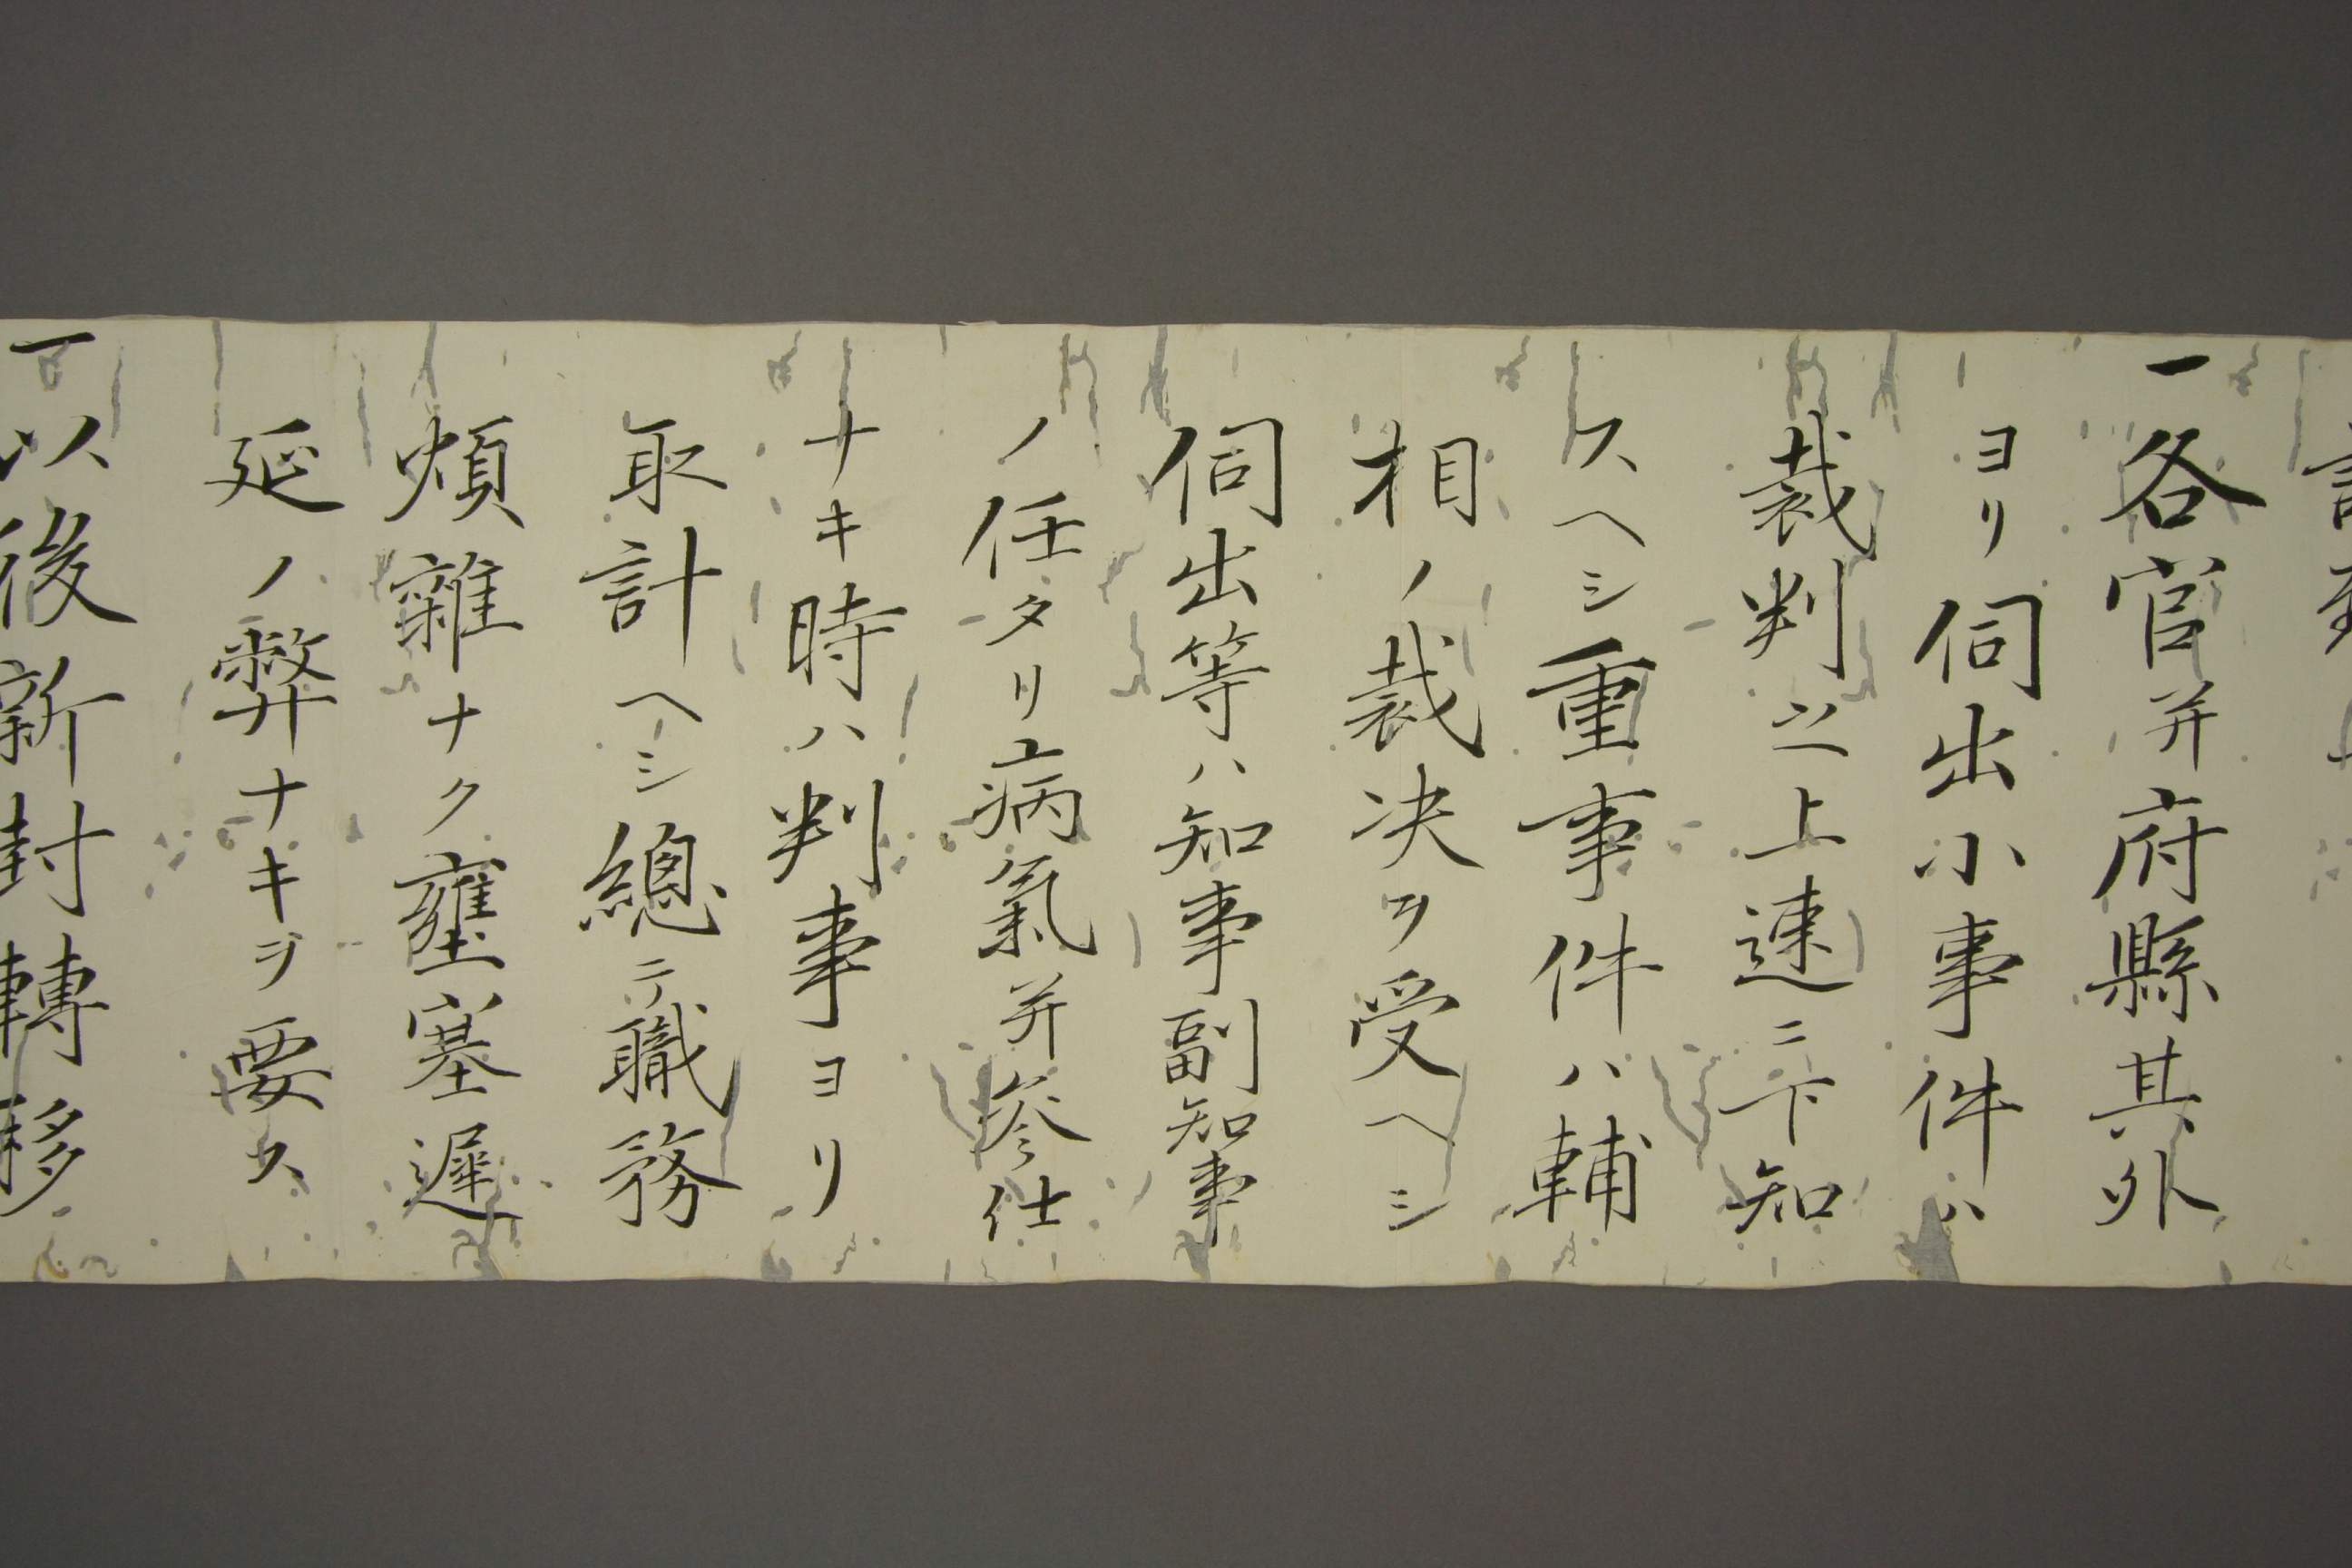 一各官并府縣其外
ヨリ伺出小事件ハ
裁判之上速ニ下知
スヘシ重事件ハ輔
相ノ裁决ヲ受ヘシ
伺出等ハ知事副知事
ノ任タリ病氣并參仕
ナキ時ハ判事ヨリ
取計ヘシ總テ職務
煩雜ナク壅塞遲
延ノ弊ナキヲ要ス
一以後新封轉移